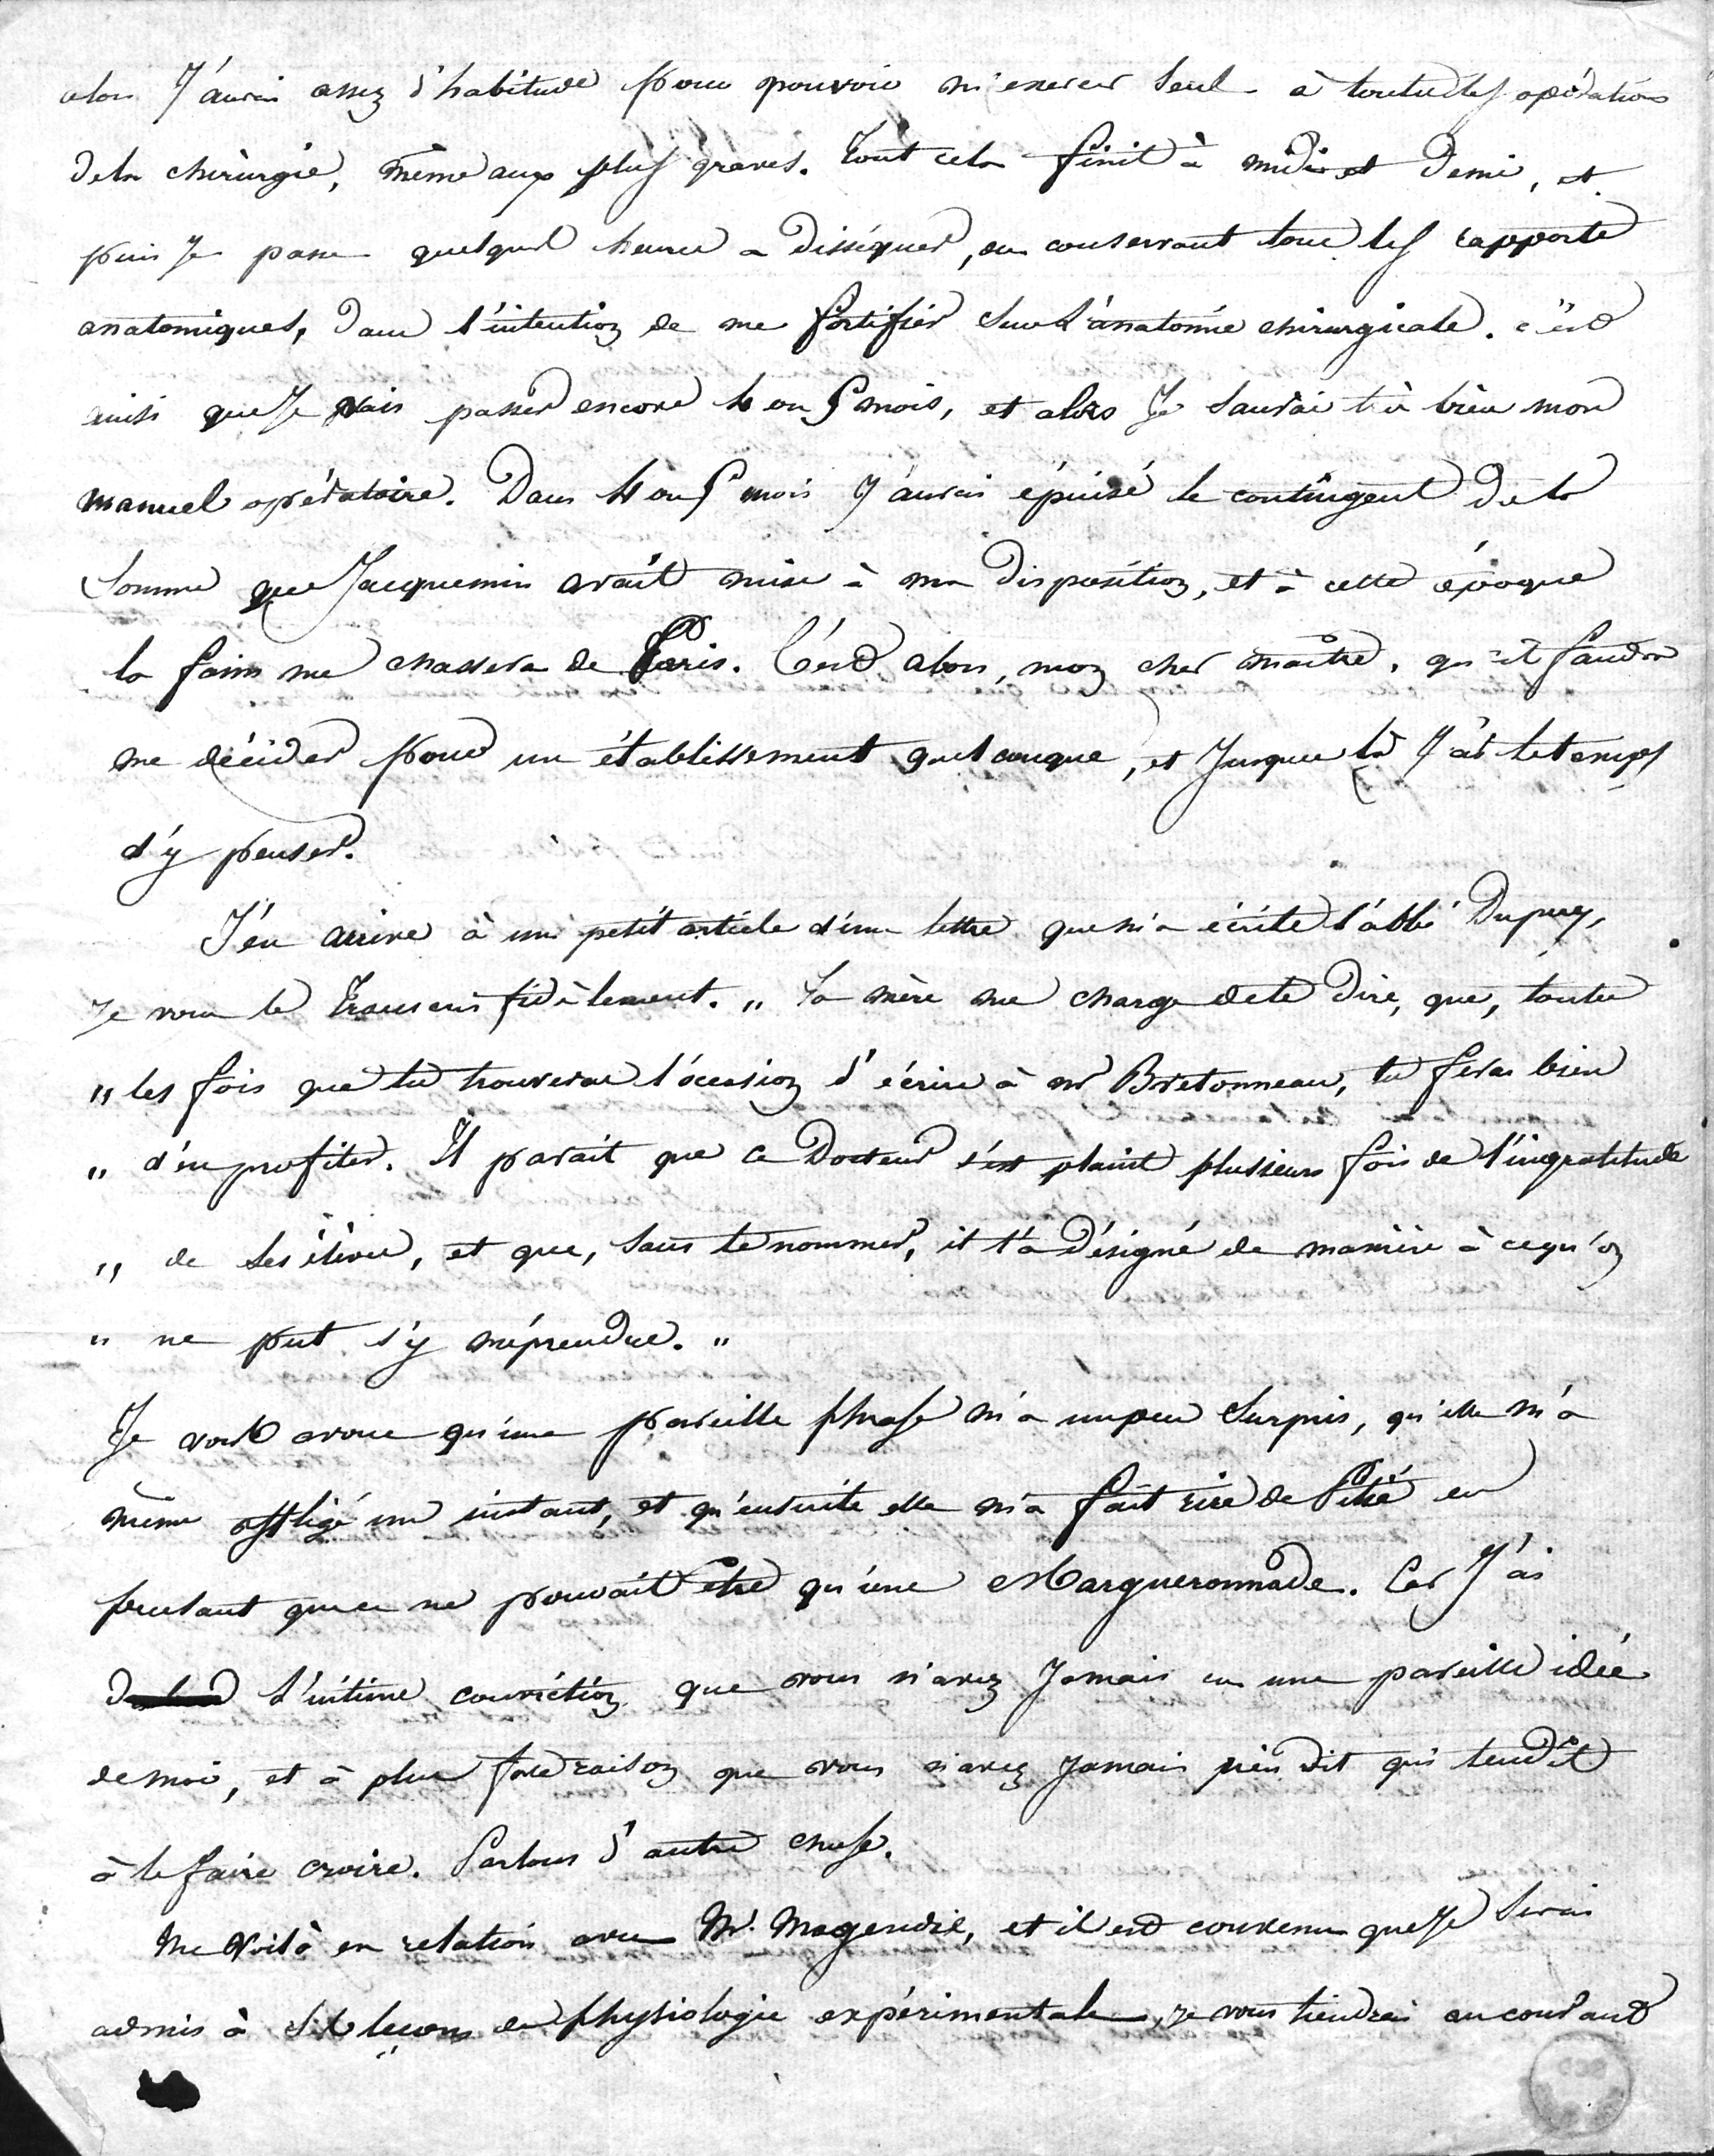 alors J'aurai assez d'habitude pour pouvoir m'exercer seul à toutes les opérations
dela chirurgie, même aux plus graves. Tout cela finit à midi et demi, et
puis Je passe quelques heures a disséquer, en conservant tous les rapports
anatomiques, dans l'intention de me fortifier sur L'anatomie chirurgicale. c'est
ainsi que Je vais passer encore 4 ou 5 mois, et alors Je saurai très bien mon
manuel opératoire. Dans 4 ou 5 mois J'aurai épuisé le contingent de la
somme que Jacquemin avait mise à ma disposition, et à cette époque
la faim me chassera de Paris. C'est alors, mon cher maître, qu'il faudra
me décider pour un établissement quelconque, et Jusque là J'ai le temps
d'y penser.
J'en arrive à un petit article d'une lettre que m'a écrite l'abbé Dupuy,
Je vous le transcris fidèlement. " Ta mère me charge dete dire, que, toutes
" les fois que tu trouveras l'occasion d'écrire à mr Bretonneau, tu feras bien
" d'en profiter. Il parait que ce Docteur s'est plaint plusieurs fois de l'ingratitude
" de ses élèves, et que, sans te nommer, il t'a désigné de manière à cequ'on
" ne put s'y méprendre. "
Je vous avoue qu'une pareille phrase m'a un peu surpris, qu'elle m'a
même affligé un instant, et qu'ensuite elle m'a fait rire de Pitié en
pensant que ce ne pouvait être qu'une Margueronnade. Car J'ai
l'intime conviction que vous n'avez Jamais eu une pareille idée
de moi, et à plus forte raison que vous n'avez Jamais rien dit qui tendît
à le faire croire. Parlons d'autre chose.
Me voilà en relation avec Mr. Magendie, et il est convenu que Je serai
admis à ses leçons de physiologie expérimentale, Je vous tiendrai au courant